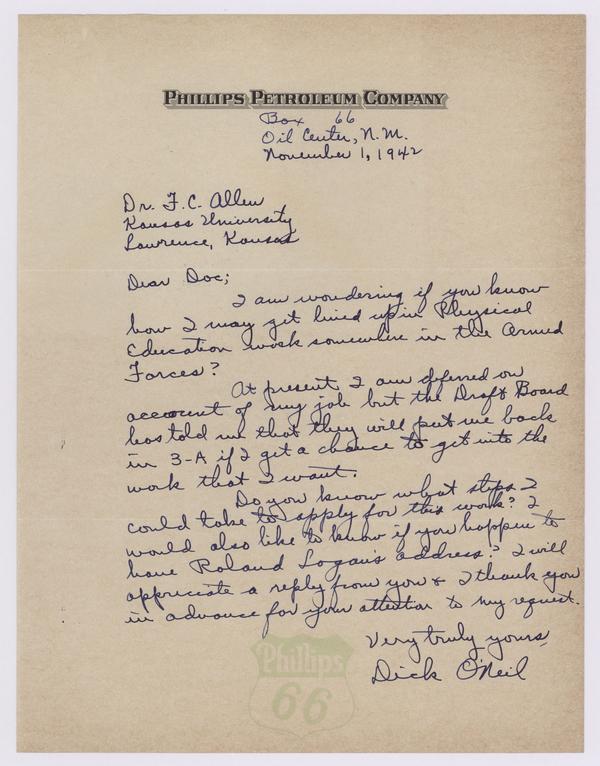 PHILLIPS PETROLEUM COMPANY
Box 66
Oil Center, N.M.
November 1, 1942
Dr. F.C. Allen
Kansas University
Lawrence, Kansas
Dear Doc;
I am wondering if you know
how I may get lined up in Physical
Education work somewhere in the Armed
Forces?
At present I am deferred on
account of my job but the Draft Board
has told me that they will put me back
in 3-A if I get a chance to get into the
work that I want.
Do you know what steps I
could take to apply for this work? I
would also like to know if you happen to
have Roland Logan's address? I will
appriciate a reply from you & I thank you
in advance for your attention to my request.
Very truly yours,
Dick O'Neil
Phillips
66